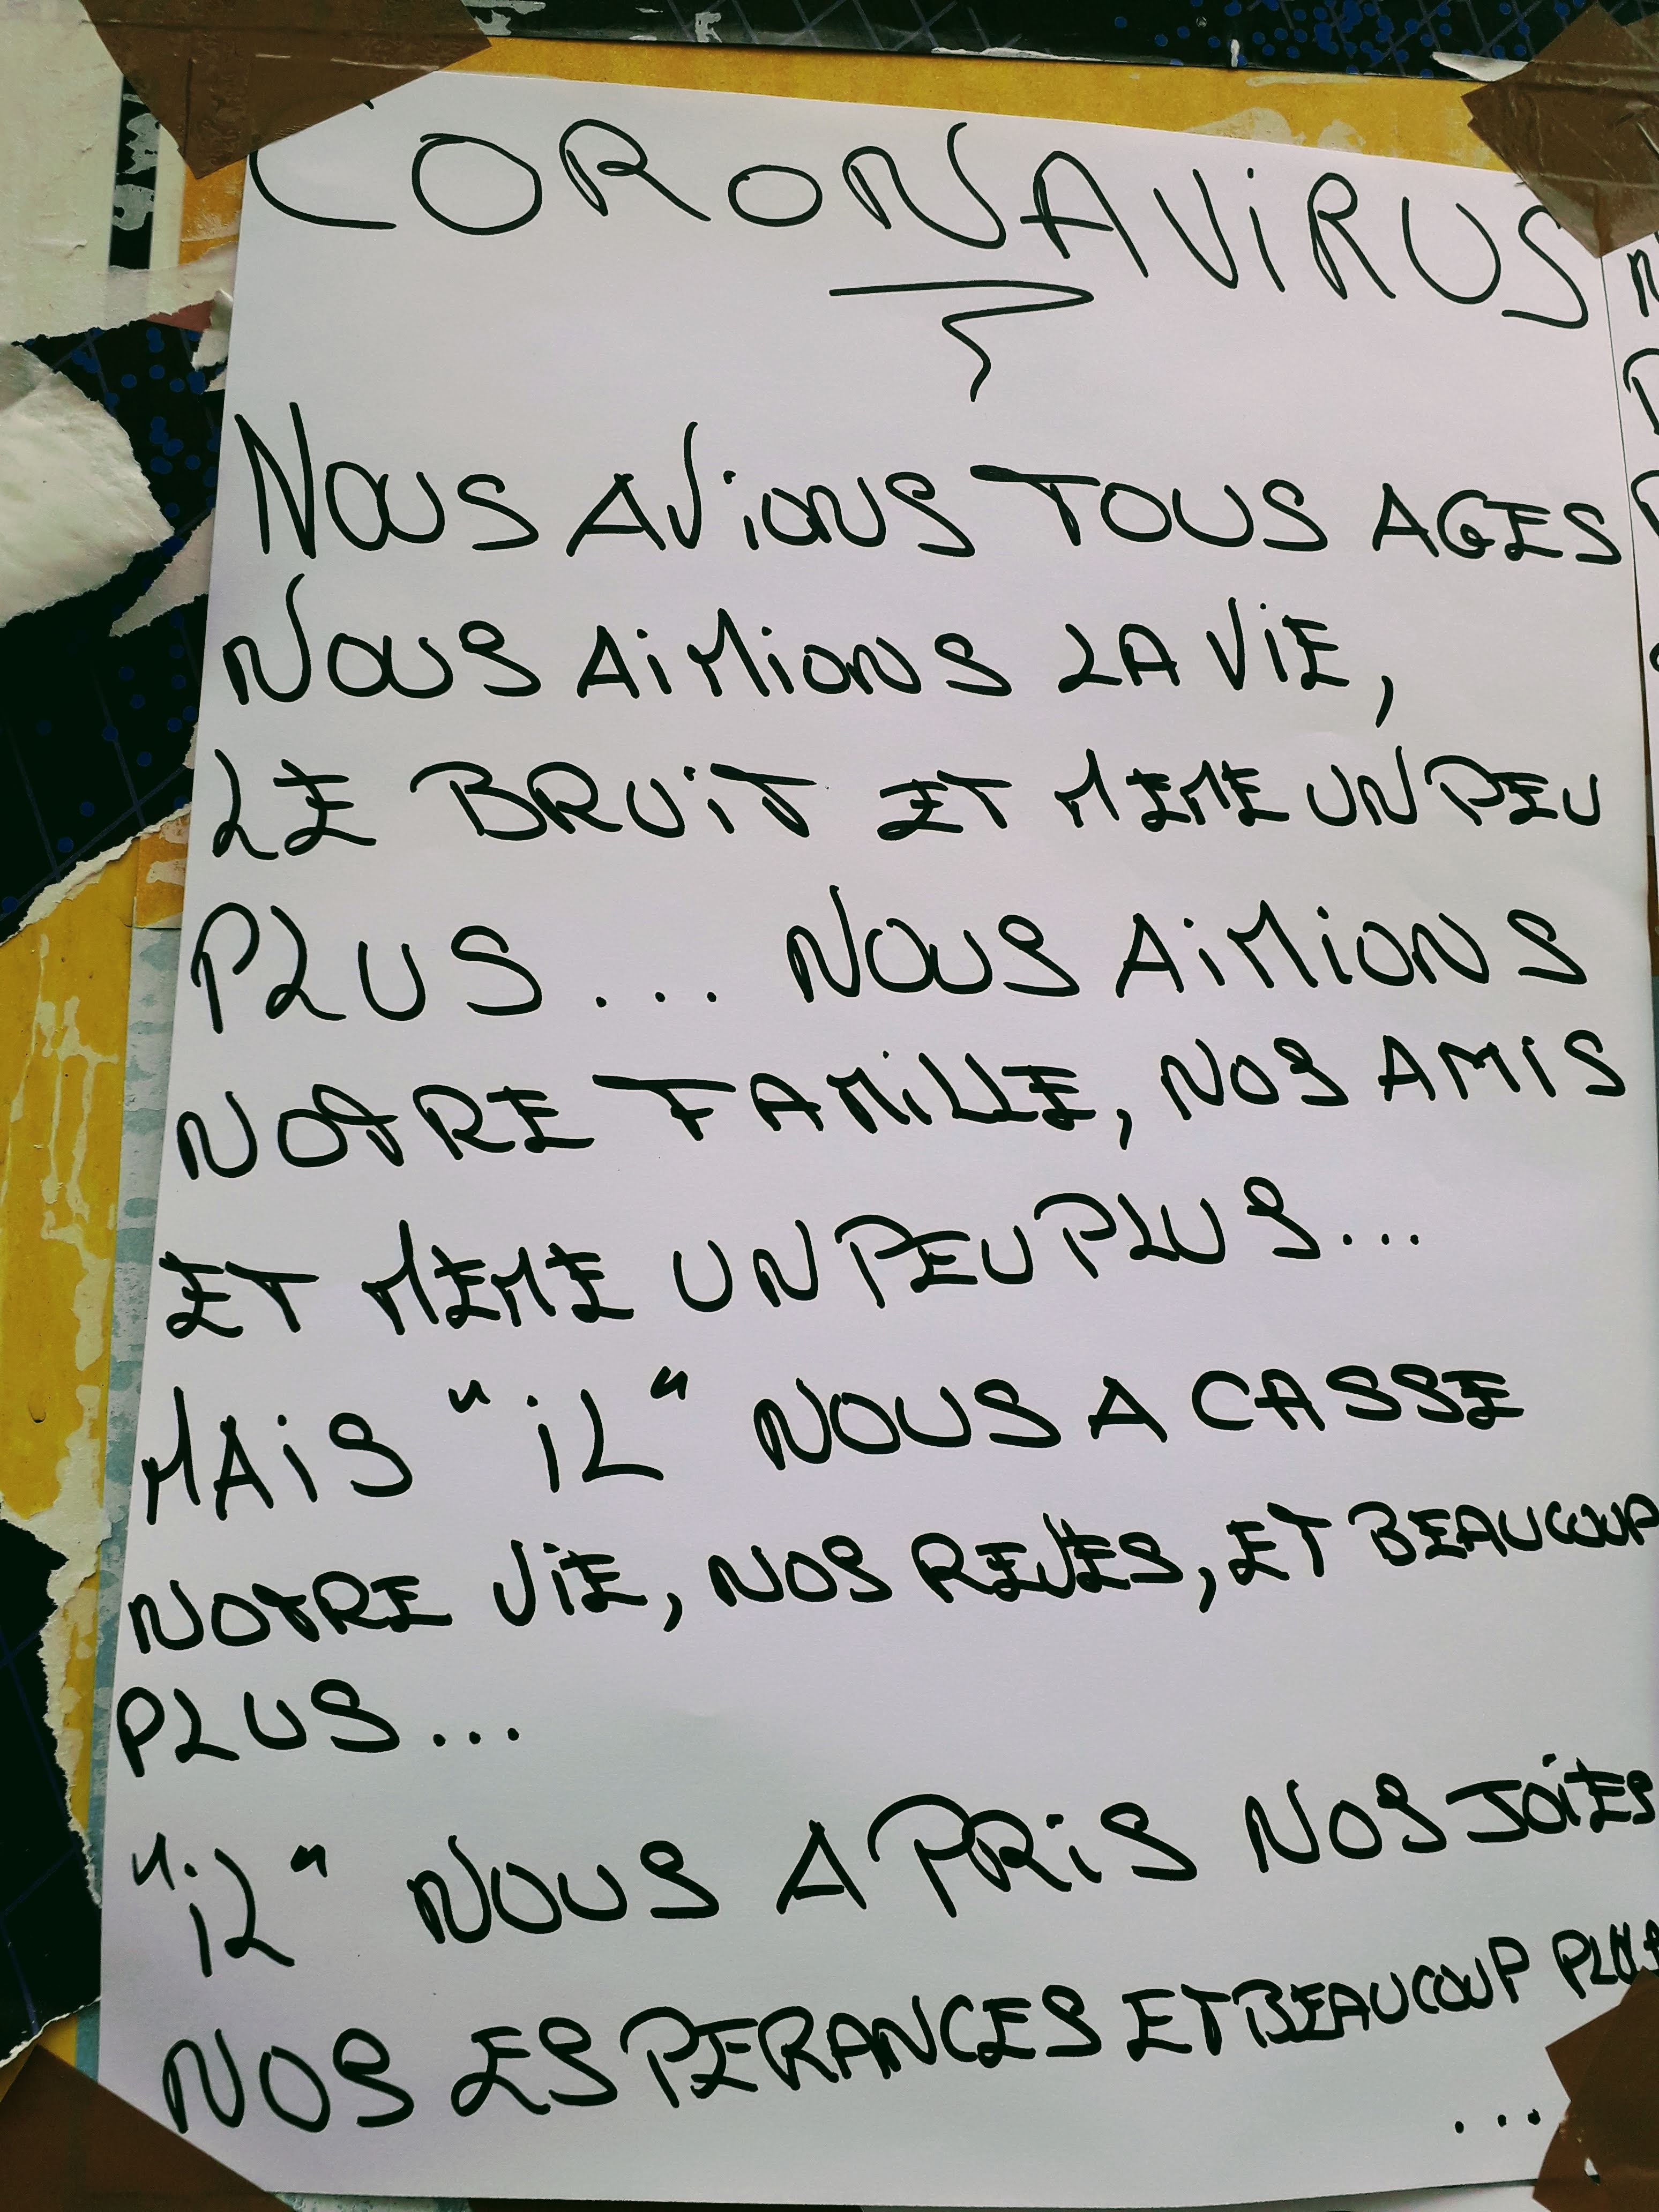 CORONAVIRUS
NOUS AViONS TOUS AGES
NOUS AiMiONS LA ViE,
LE BRUiT ET MEME UN PEU
PLUS... NOUS AiMiONS
NOTRE FAMiLLE, NOS AMIS
ET MEME UN PEU PLUS...
MAiS "iL" NOUS A CASSE
NOTRE ViE, NOS REVES, ET BEAUCOUP
PLUS...
"iL" NOUS A PRiS NOS JOiES
NOS ESPERANCES ET BEAUCOUP PLUS
...